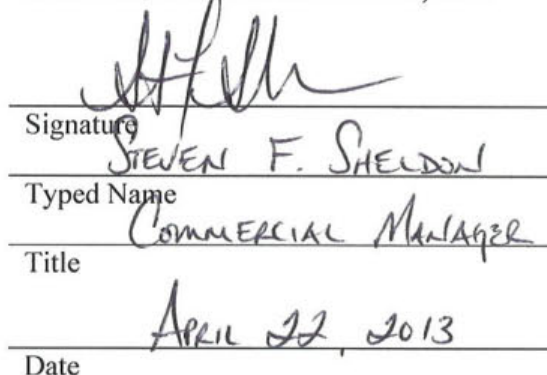 Signature
STEVEN F. SHELDON
Typed Name
COMMERCIAL MANAGER
Title
APRIL 22, 2013
Date